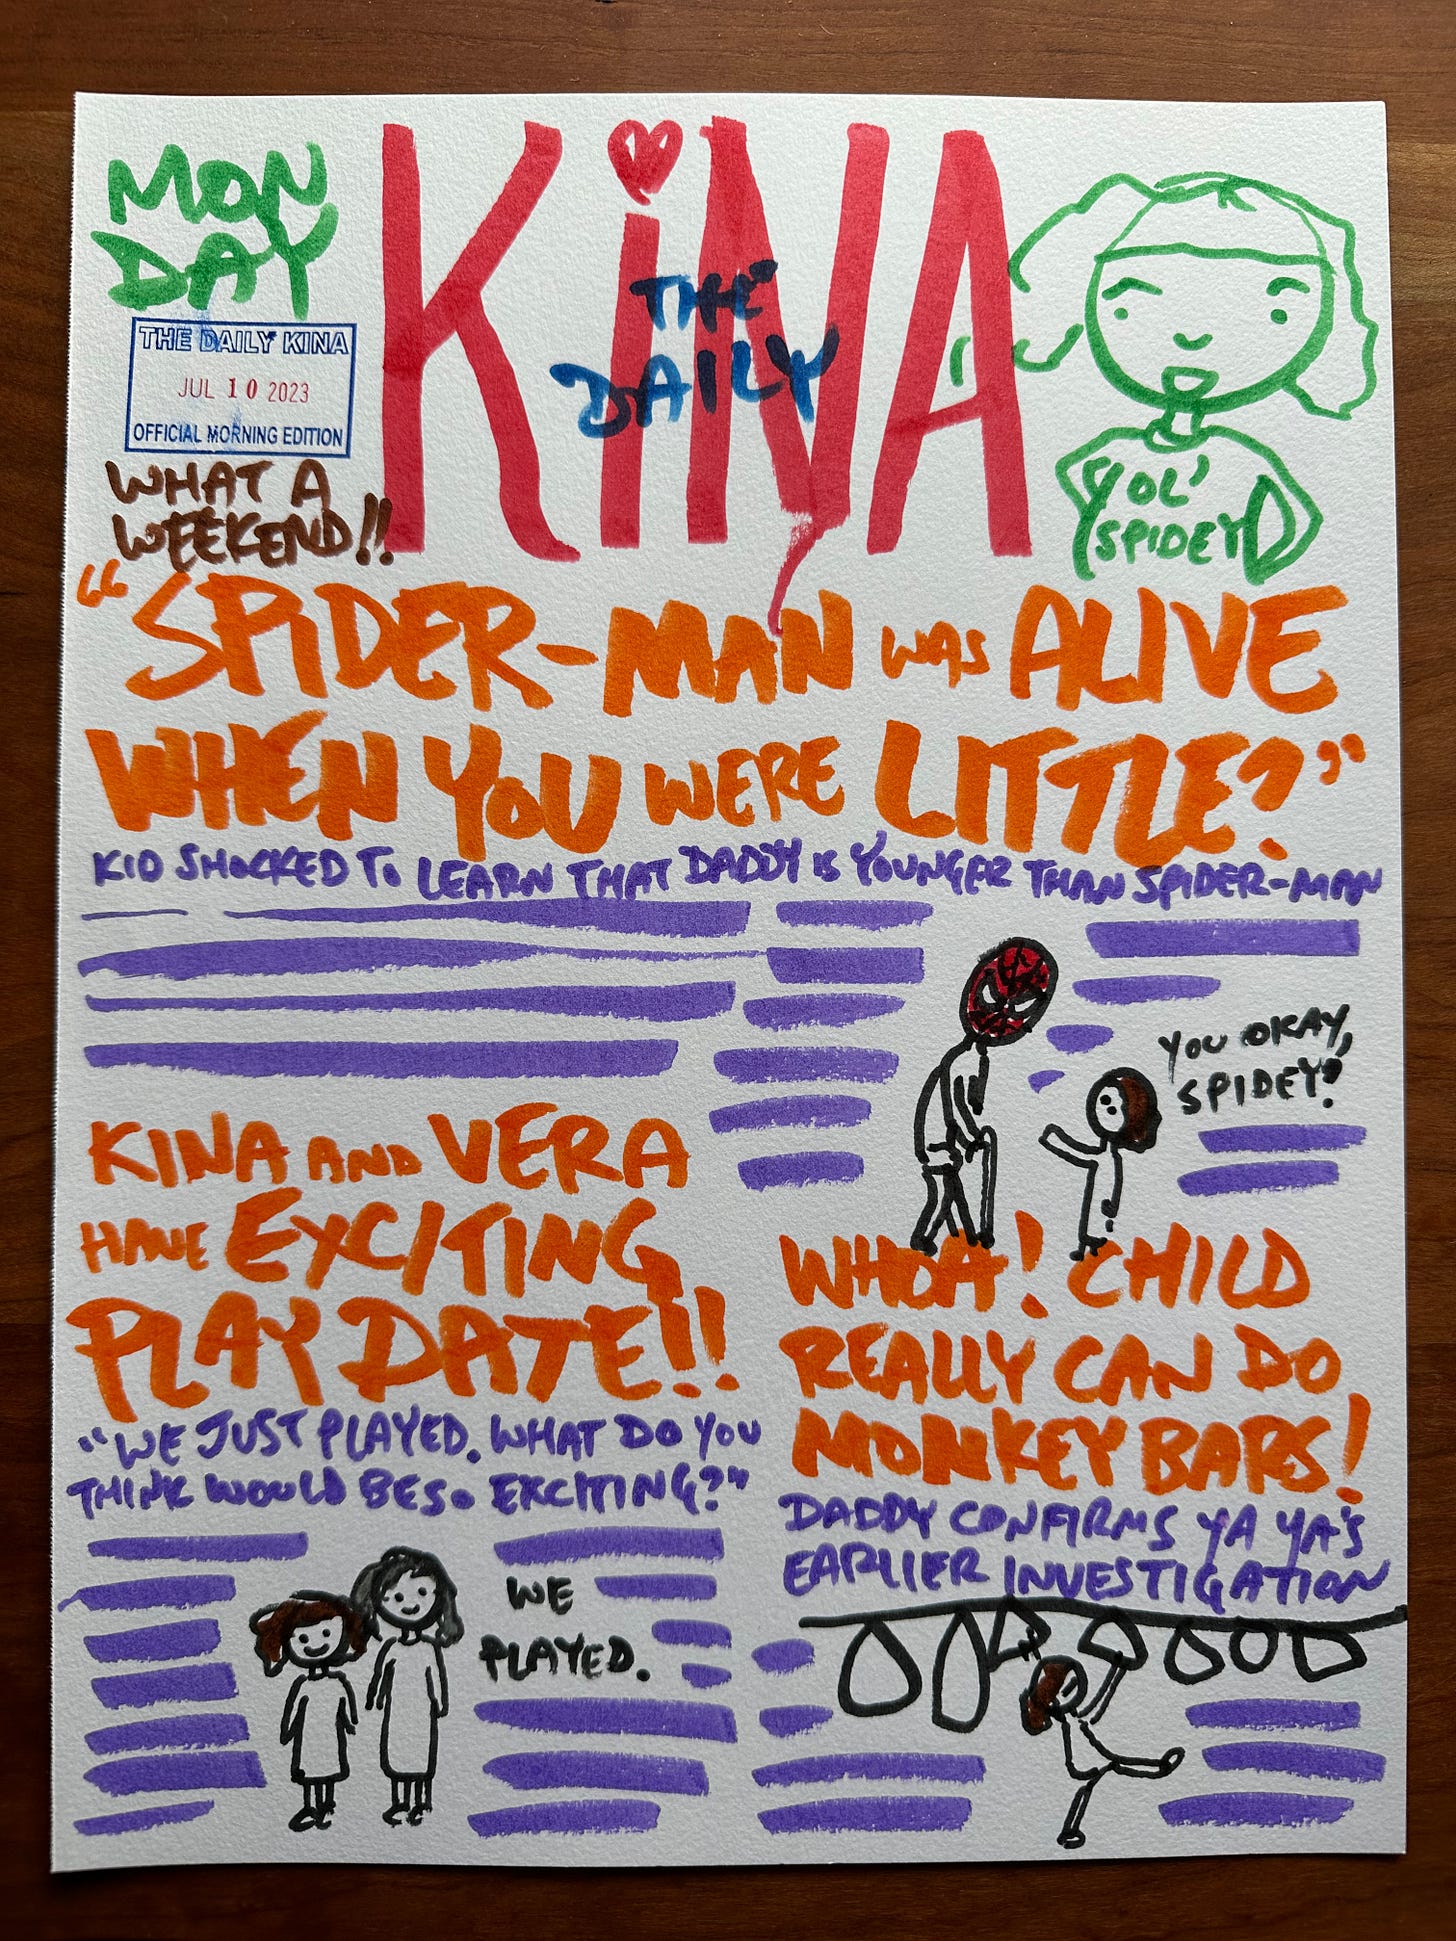 MON
DAY
THE DAILY KINA
JUL 10 2023
OFFICIAL MORNING EDITION
WHAT A
WEEKEND!!
KiNA
THE
DAILY
YOL'
SPIDEY
"SPiDER-MAN WAS ALIVE
WHEN YOU WERE LITTLE?"
KID SHOCKED To LEARN THAT DADDY iS YOUNGER THAN SPIDER-MAN
YOU OKAY,
SPIDEY?
KINA AND VERA
HAVE EXCITING
PLAY DATE!!
"WE JUST PLAYED. WHAT DO YOU
THINK WOULD BE So EXCITING?"
WE
PLAYED.
WHOA! CHILD
REALLY CAN DO
MONKEY BARS!
DADDY CONFIRMS YA YA'S
EARLIER INVESTIGATION